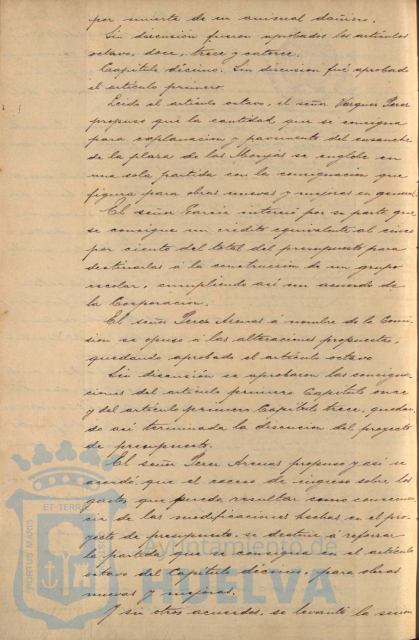 por muerte de un animal dañino.
Sin discusión fueron aprobados los artículos
octavo, doce, trece y catorce.
Capítulo décimo. Sin discusion fué aprobado
el artículo primero.
Leido el artículo octavo, el señor Vargues Perez
propuso que la cantidad que se consigna
para explanacion y pavimento del ensanche
de la plaza de las Monjas se englobe en
una sola partida con la consignacion que
figura para obras nuevas y mejoras en general
El señor Garcia interesó por su parte que
se consigne un crédito equivalente al cinco
por ciento del total del presupuesto para
destinarlas á la construccion de un grupo
escolar, cumpliendo así un acuerdo de
la Corporacion.
El señor Perez Arenas á nombre de la Comi-
sion se opuso á las alteraciones propuestas,
quedando aprobado el artículo octavo
Sin discusión se aprobaron las consigna-
ciones del artículo primero Capítulo once
y del artículo primero Capítulo trece, quedan-
do así terminada la discusion del proyecto
de presupuesto.
El señor Perez Arenas propuso y así se
acordó, que el exceso de ingreso sobre los
gastos que pueda resultar como consecuen-
cia de las modificaciones hechas en el pro-
yecto de presupuesto, se destine á reforzar
la partida que se consigna en el artículo
octavo del Capítulo décimo, para obras
nuevas y mejoras.
Y sin otros acuerdos, se levantó la sesion
PORTUS MARIS ET TERRAE
Ayuntamiento de
HUELVA